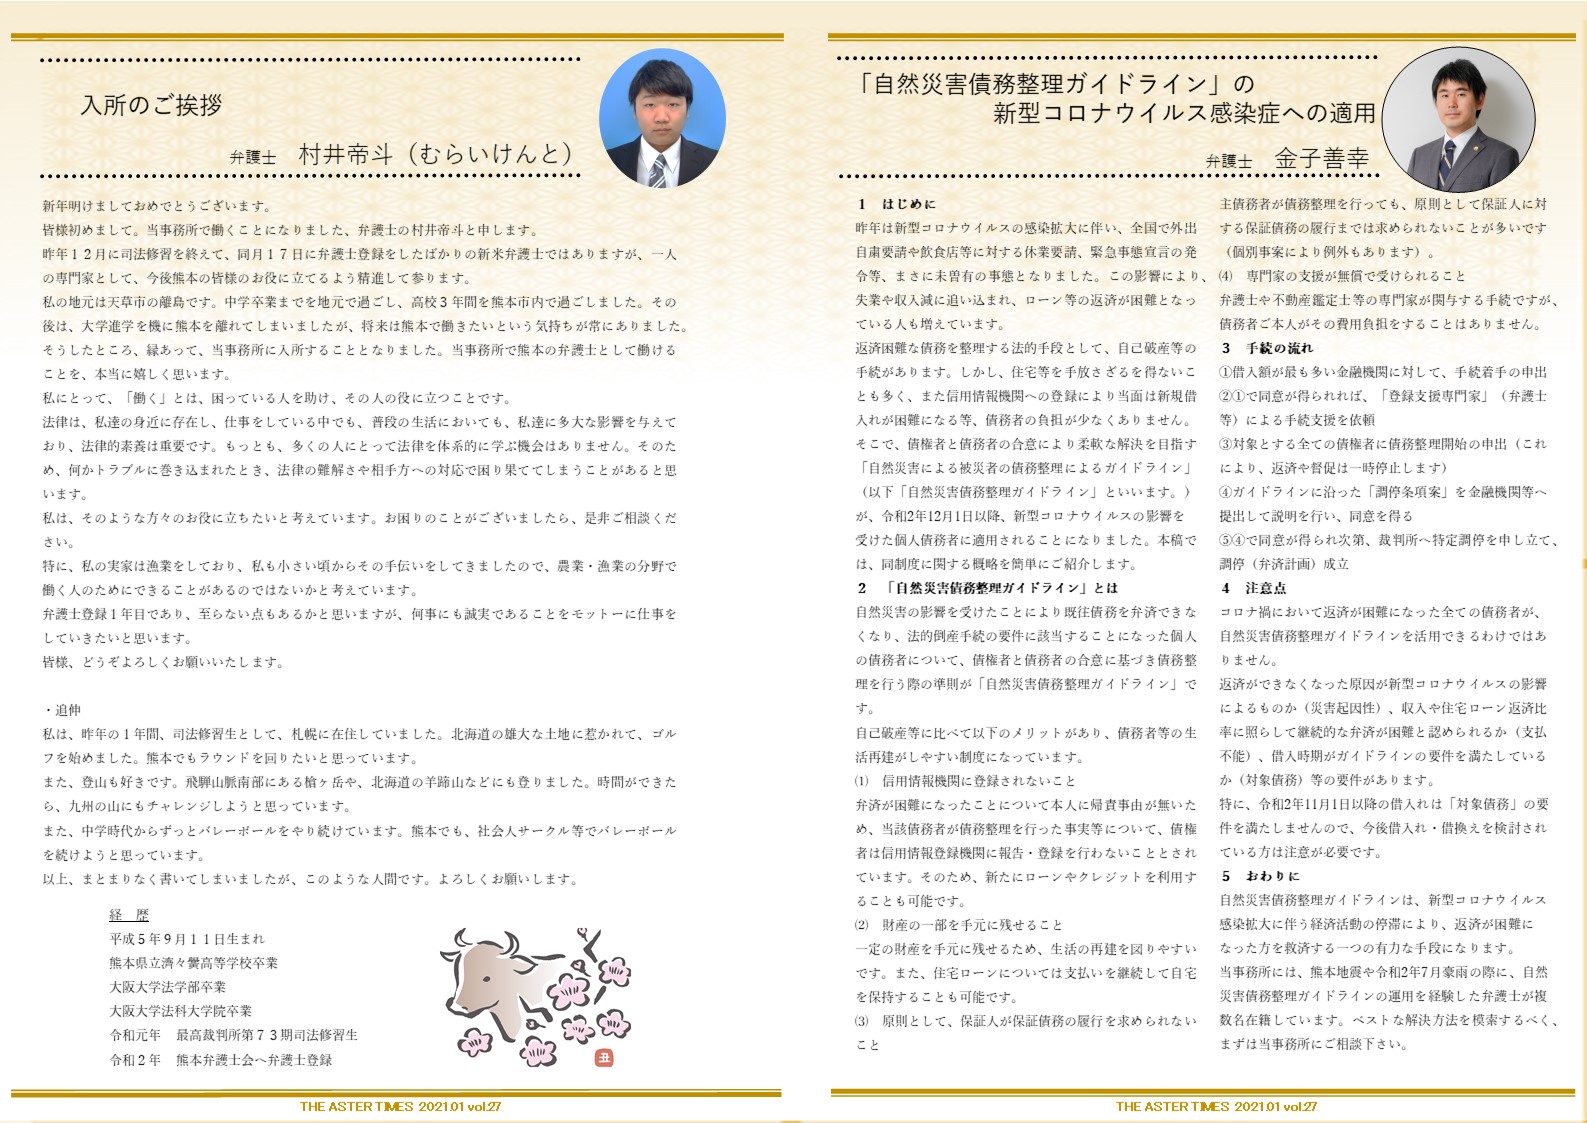 入所のご挨拶
弁護士　村井帝斗（むらいけんと）
新年明けましておめでとうございます。
皆様初めまして。当事務所で働くことになりました、弁護士の村井帝斗と申します。
昨年１２月に司法修習を終えて、同月１７日に弁護士登録をしたばかりの新米弁護士ではありますが、一人
の専門家として、今後熊本の皆様のお役に立てるよう精進して参ります。
私の地元は天草市の離島です。中学卒業までを地元で過ごし、高校３年間を熊本市内で過ごしました。その
後は、大学進学を機に熊本を離れてしまいましたが、将来は熊本で働きたいという気持ちが常にありました。
そうしたところ、縁あって、当事務所に入所することとなりました。当事務所で熊本の弁護士として働ける
ことを、本当に嬉しく思います。
私にとって、「働く」とは、困っている人を助け、その人の役に立つことです。
法律は、私達の身近に存在し、仕事をしている中でも、普段の生活においても、私達に多大な影響を与えて
おり、法律的素養は重要です。もっとも、多くの人にとって法律を体系的に学ぶ機会はありません。そのた
め、何かトラブルに巻き込まれたとき、法律の難解さや相手方への対応で困り果ててしまうことがあると思
います。
私は、そのような方々のお役に立ちたいと考えています。お困りのことがございましたら、是非ご相談くだ
さい。
特に、私の実家は漁業をしており、私も小さい頃からその手伝いをしてきましたので、農業・漁業の分野で
働く人のためにできることがあるのではないかと考えています。
弁護士登録１年目であり、至らない点もあるかと思いますが、何事にも誠実であることをモットーに仕事を
していきたいと思います。
皆様、どうぞよろしくお願いいたします。
・追伸
私は、昨年の１年間、司法修習生として、札幌に在住していました。北海道の雄大な土地に惹かれて、ゴル
フを始めました。熊本でもラウンドを回りたいと思っています。
また、登山も好きです。飛騨山脈南部にある槍ヶ岳や、北海道の羊蹄山などにも登りました。時間ができた
ら、九州の山にもチャレンジしようと思っています。
また、中学時代からずっとバレーボールをやり続けています。熊本でも、社会人サークル等でバレーボール
を続けようと思っています。
以上、まとまりなく書いてしまいましたが、このような人間です。よろしくお願いします。
経　歴
平成５年９月１１日生まれ
熊本県立済々黌高等学校卒業
大阪大学法学部卒業
大阪大学法科大学院卒業
令和元年　最高裁判所第７３期司法修習生
令和２年　熊本弁護士会へ弁護士登録
丑
THE ASTER TIMES 2021.01 vol.27
「自然災害債務整理ガイドライン」の
新型コロナウイルス感染症への適用
弁護士　金子善幸
１　はじめに
昨年は新型コロナウイルスの感染拡大に伴い、全国で外出
自粛要請や飲食店等に対する休業要請、緊急事態宣言の発
令等、まさに未曽有の事態となりました。この影響により、
失業や収入減に追い込まれ、ローン等の返済が困難となっ
ている人も増えています。
返済困難な債務を整理する法的手段として、自己破産等の
手続があります。しかし、住宅等を手放さざるを得ないこ
とも多く、また信用情報機関への登録により当面は新規借
入れが困難になる等、債務者の負担が少なくありません。
そこで、債権者と債務者の合意により柔軟な解決を目指す
「自然災害による被災者の債務整理によるガイドライン」
（以下「自然災害債務整理ガイドライン」といいます。）
が、令和2年12月1日以降、新型コロナウイルスの影響を
受けた個人債務者に適用されることになりました。本稿で
は、同制度に関する概略を簡単にご紹介します。
２　「自然災害債務整理ガイドライン」とは
自然災害の影響を受けたことにより既往債務を弁済できな
くなり、法的倒産手続の要件に該当することになった個人
の債務者について、債権者と債務者の合意に基づき債務整
理を行う際の準則が「自然災害債務整理ガイドライン」で
す。
自己破産等に比べて以下のメリットがあり、債務者等の生
活再建がしやすい制度になっています。
⑴　信用情報機関に登録されないこと
弁済が困難になったことについて本人に帰責事由が無いた
め、当該債務者が債務整理を行った事実等について、債権
者は信用情報登録機関に報告・登録を行わないこととされ
ています。そのため、新たにローンやクレジットを利用す
ることも可能です。
⑵　財産の一部を手元に残せること
一定の財産を手元に残せるため、生活の再建を図りやすい
です。また、住宅ローンについては支払いを継続して自宅
を保持することも可能です。
⑶　原則として、保証人が保証債務の履行を求められない
こと
主債務者が債務整理を行っても、原則として保証人に対
する保証債務の履行までは求められないことが多いです
（個別事案により例外もあります）。
⑷　専門家の支援が無償で受けられること
弁護士や不動産鑑定士等の専門家が関与する手続ですが、
債務者ご本人がその費用負担をすることはありません。
３　手続の流れ
①借入額が最も多い金融機関に対して、手続着手の申出
②①で同意が得られれば、「登録支援専門家」（弁護士
等）による手続支援を依頼
③対象とする全ての債権者に債務整理開始の申出（これ
により、返済や督促は一時停止します）
④ガイドラインに沿った「調停条項案」を金融機関等へ
提出して説明を行い、同意を得る
⑤④で同意が得られ次第、裁判所へ特定調停を申し立て、
調停（弁済計画）成立
４　注意点
コロナ禍において返済が困難になった全ての債務者が、
自然災害債務整理ガイドラインを活用できるわけではあ
りません。
返済ができなくなった原因が新型コロナウイルスの影響
によるものか（災害起因性）、収入や住宅ローン返済比
率に照らして継続的な弁済が困難と認められるか（支払
不能）、借入時期がガイドラインの要件を満たしている
か（対象債務）等の要件があります。
特に、令和2年11月1日以降の借入れは「対象債務」の要
件を満たしませんので、今後借入れ・借換えを検討され
ている方は注意が必要です。
５　おわりに
自然災害債務整理ガイドラインは、新型コロナウイルス
感染拡大に伴う経済活動の停滞により、返済が困難に
なった方を救済する一つの有力な手段になります。
当事務所には、熊本地震や令和2年7月豪雨の際に、自然
災害債務整理ガイドラインの運用を経験した弁護士が複
数名在籍しています。ベストな解決方法を模索するべく、
まずは当事務所にご相談下さい。
THE ASTER TIMES 2021.01 vol.27